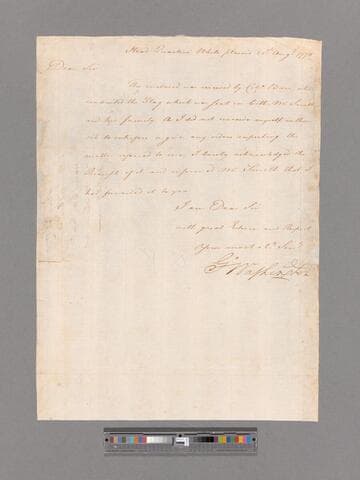 Head Quarters White plains 20th Augt 1778
Dear Sir
The enclosed was received by Capt who
conducted the Flag which was sent in with Mrs Smith
and her family. As I did not conceive myself author
ised to interfere or give any orders respecting the
matter referred to me, I barely acknowledged the
Receipt of it and informed Mr Smith that I
had forwarded it to you
I am Dear Sir
with great Esteem and Respect
Your most Obt Servt
Go: Washington